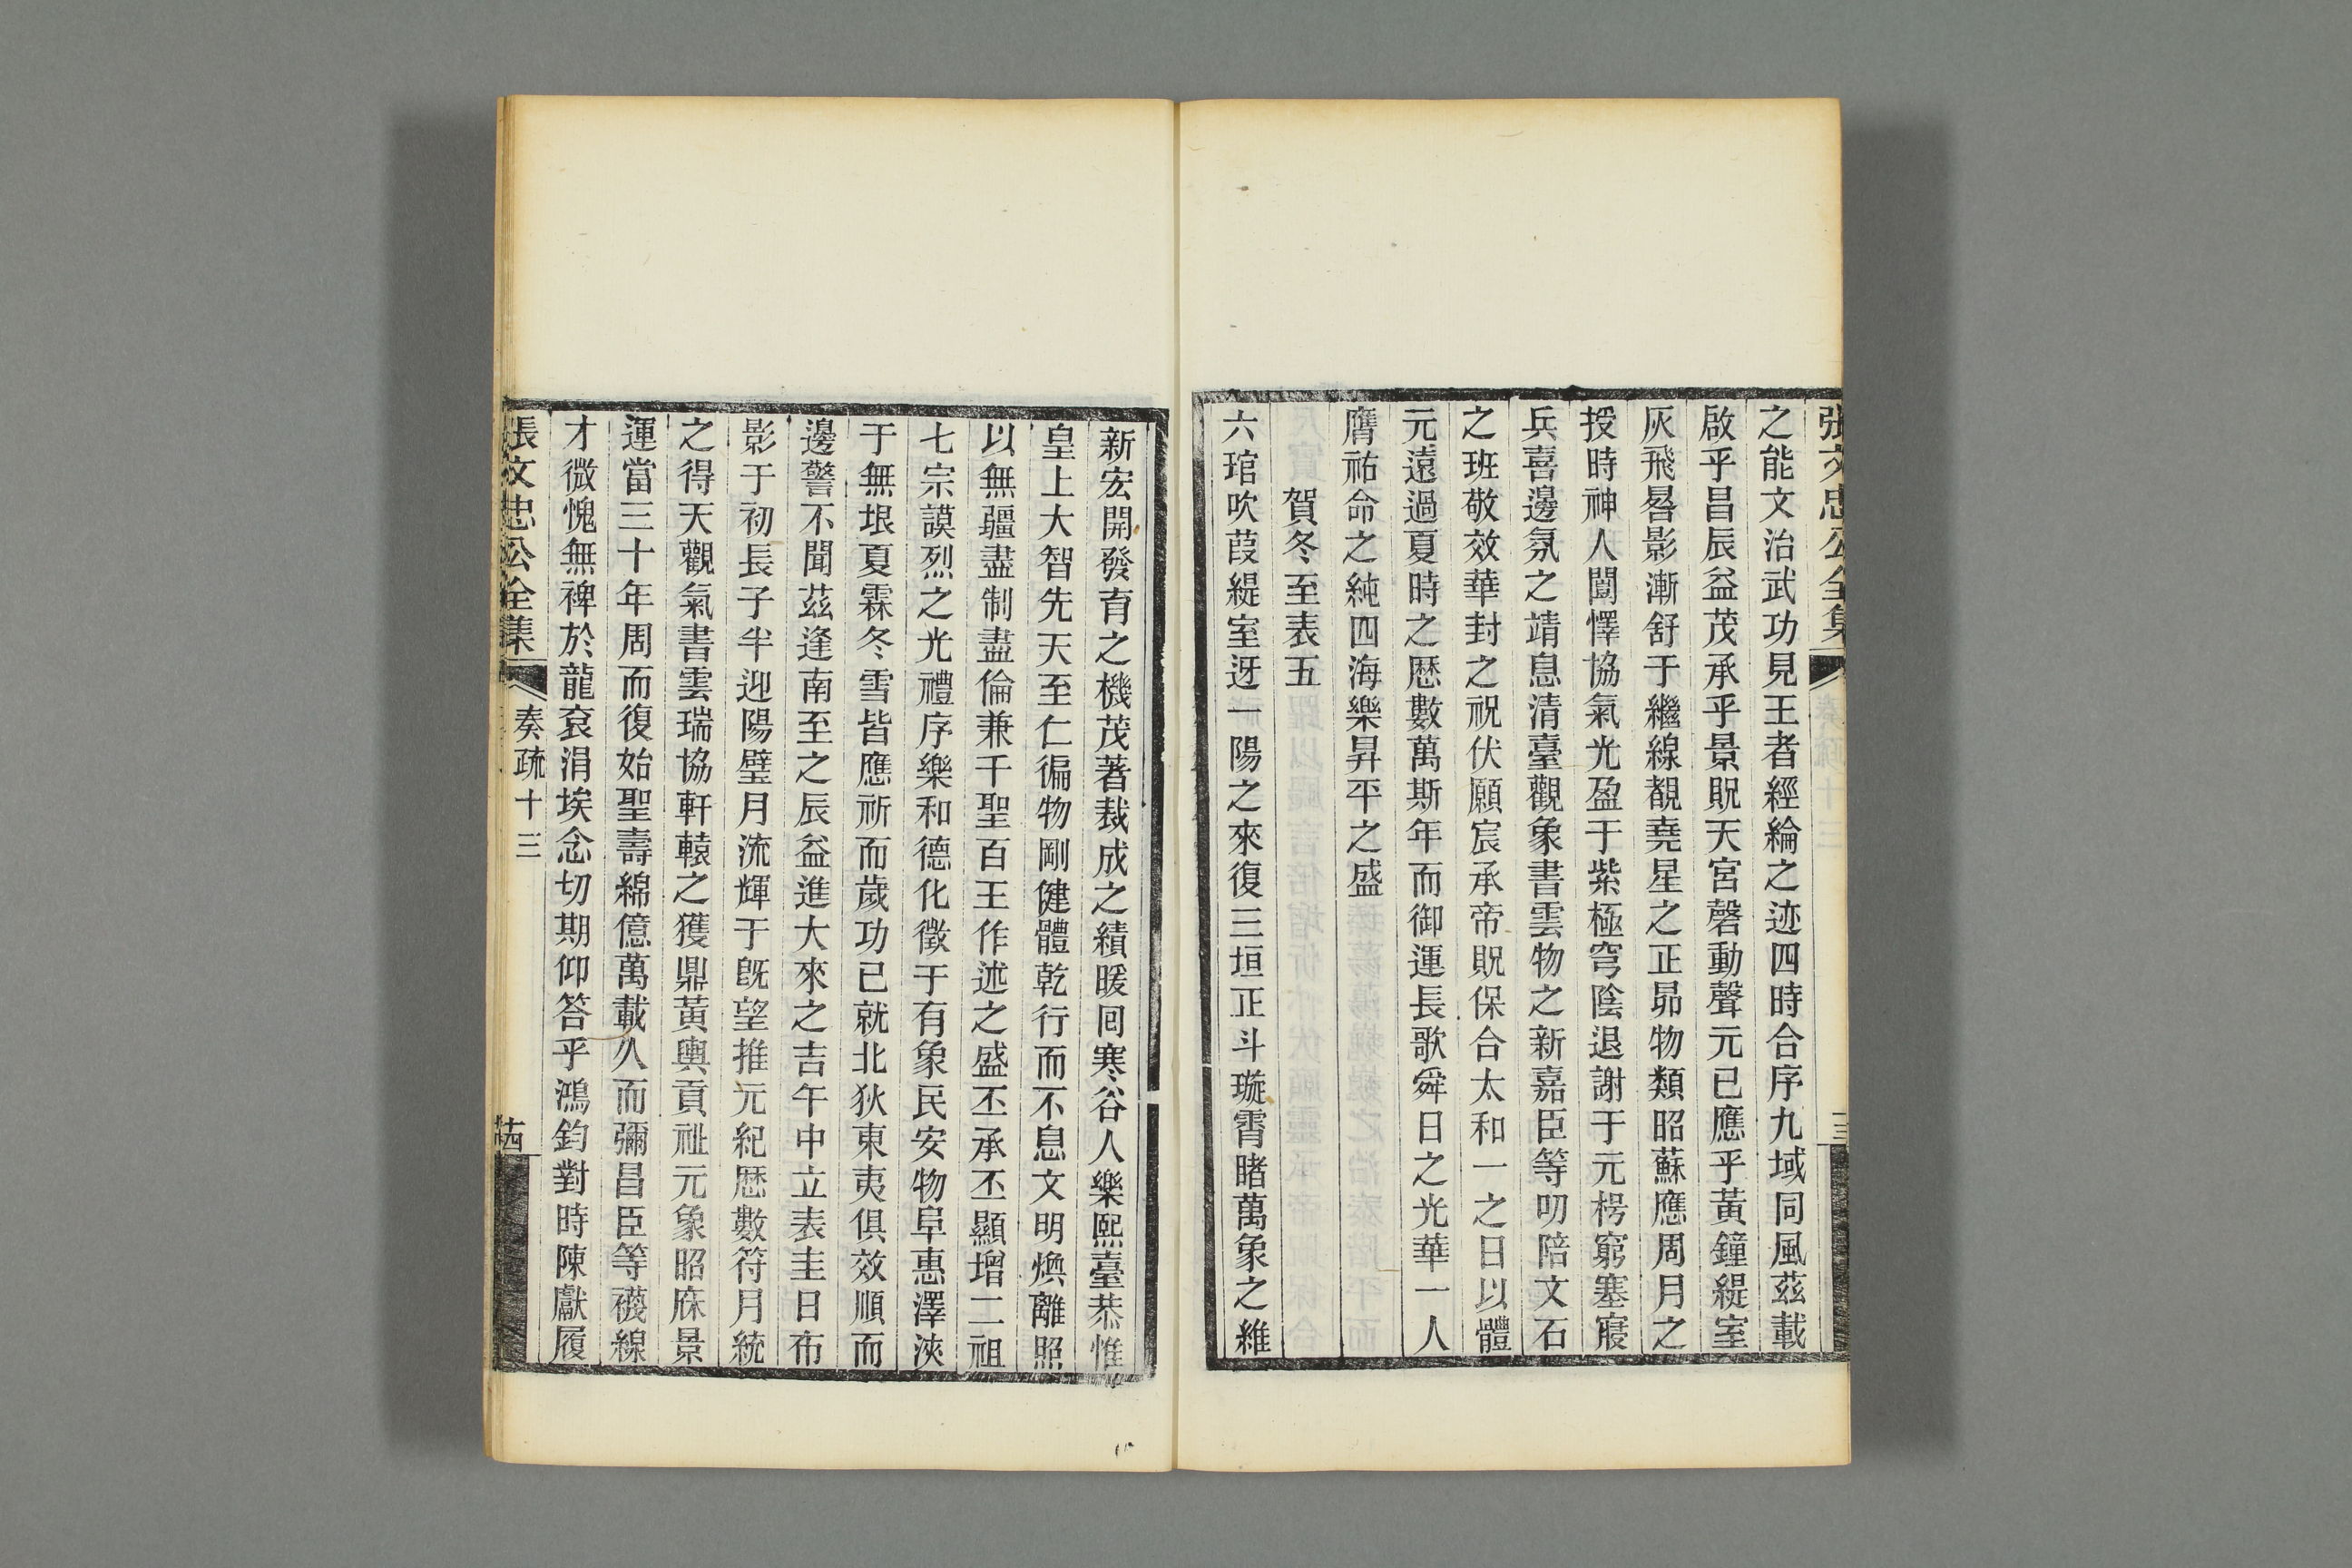 張文忠公全集
十三
之能文治武功見王者經綸之迹四時合序九域同風茲載
啟乎昌辰益茂承乎景貺天宮磬動聲元已應乎黃鐘緹室
灰飛晷影漸舒于繼線覩堯星之正昴物類昭蘇應周月之
授時神人闓懌協氣光盈于紫極穹陰退謝于元枵窮塞寢
兵喜邊氛之靖息清臺觀象書雲物之新嘉臣等叨陪文石
之班敬效華封之祝伏願宸承帝貺保合太和一之日以體
元遠過夏時之歷數萬斯年而御運長歌舜日之光華一人
膺祐命之純四海樂昇平之盛
賀冬至表五
六琯吹葭緹室迓一陽之來復三垣正斗璇霄睹萬象之維
新宏開發育之機茂著裁成之績暖回寒谷人樂熙臺恭惟
皇上大智先天至仁徧物剛健體乾行而不息文明煥離照
以無疆盡制盡倫兼千聖百王作述之盛丕承丕顯增二祖
七宗謨烈之光禮序樂和德化徵于有象民安物阜惠澤浹
于無垠夏霖冬雪皆應祈而歲功已就北狄東夷俱效順而
邊警不聞茲逢南至之辰益進大來之吉午中立表圭日布
影于初長子半迎陽璧月流輝于旣望推元紀歷數符月統
之得天觀氣書雲瑞協軒轅之獲鼎黃輿貢祉元象昭庥景
運當三十年周而復始聖壽綿億萬載久而彌昌臣等襪線
才微愧無裨於龍袞涓埃念切期仰答乎鴻鈞對時陳獻履
張文忠公全集
奏疏十三
十四